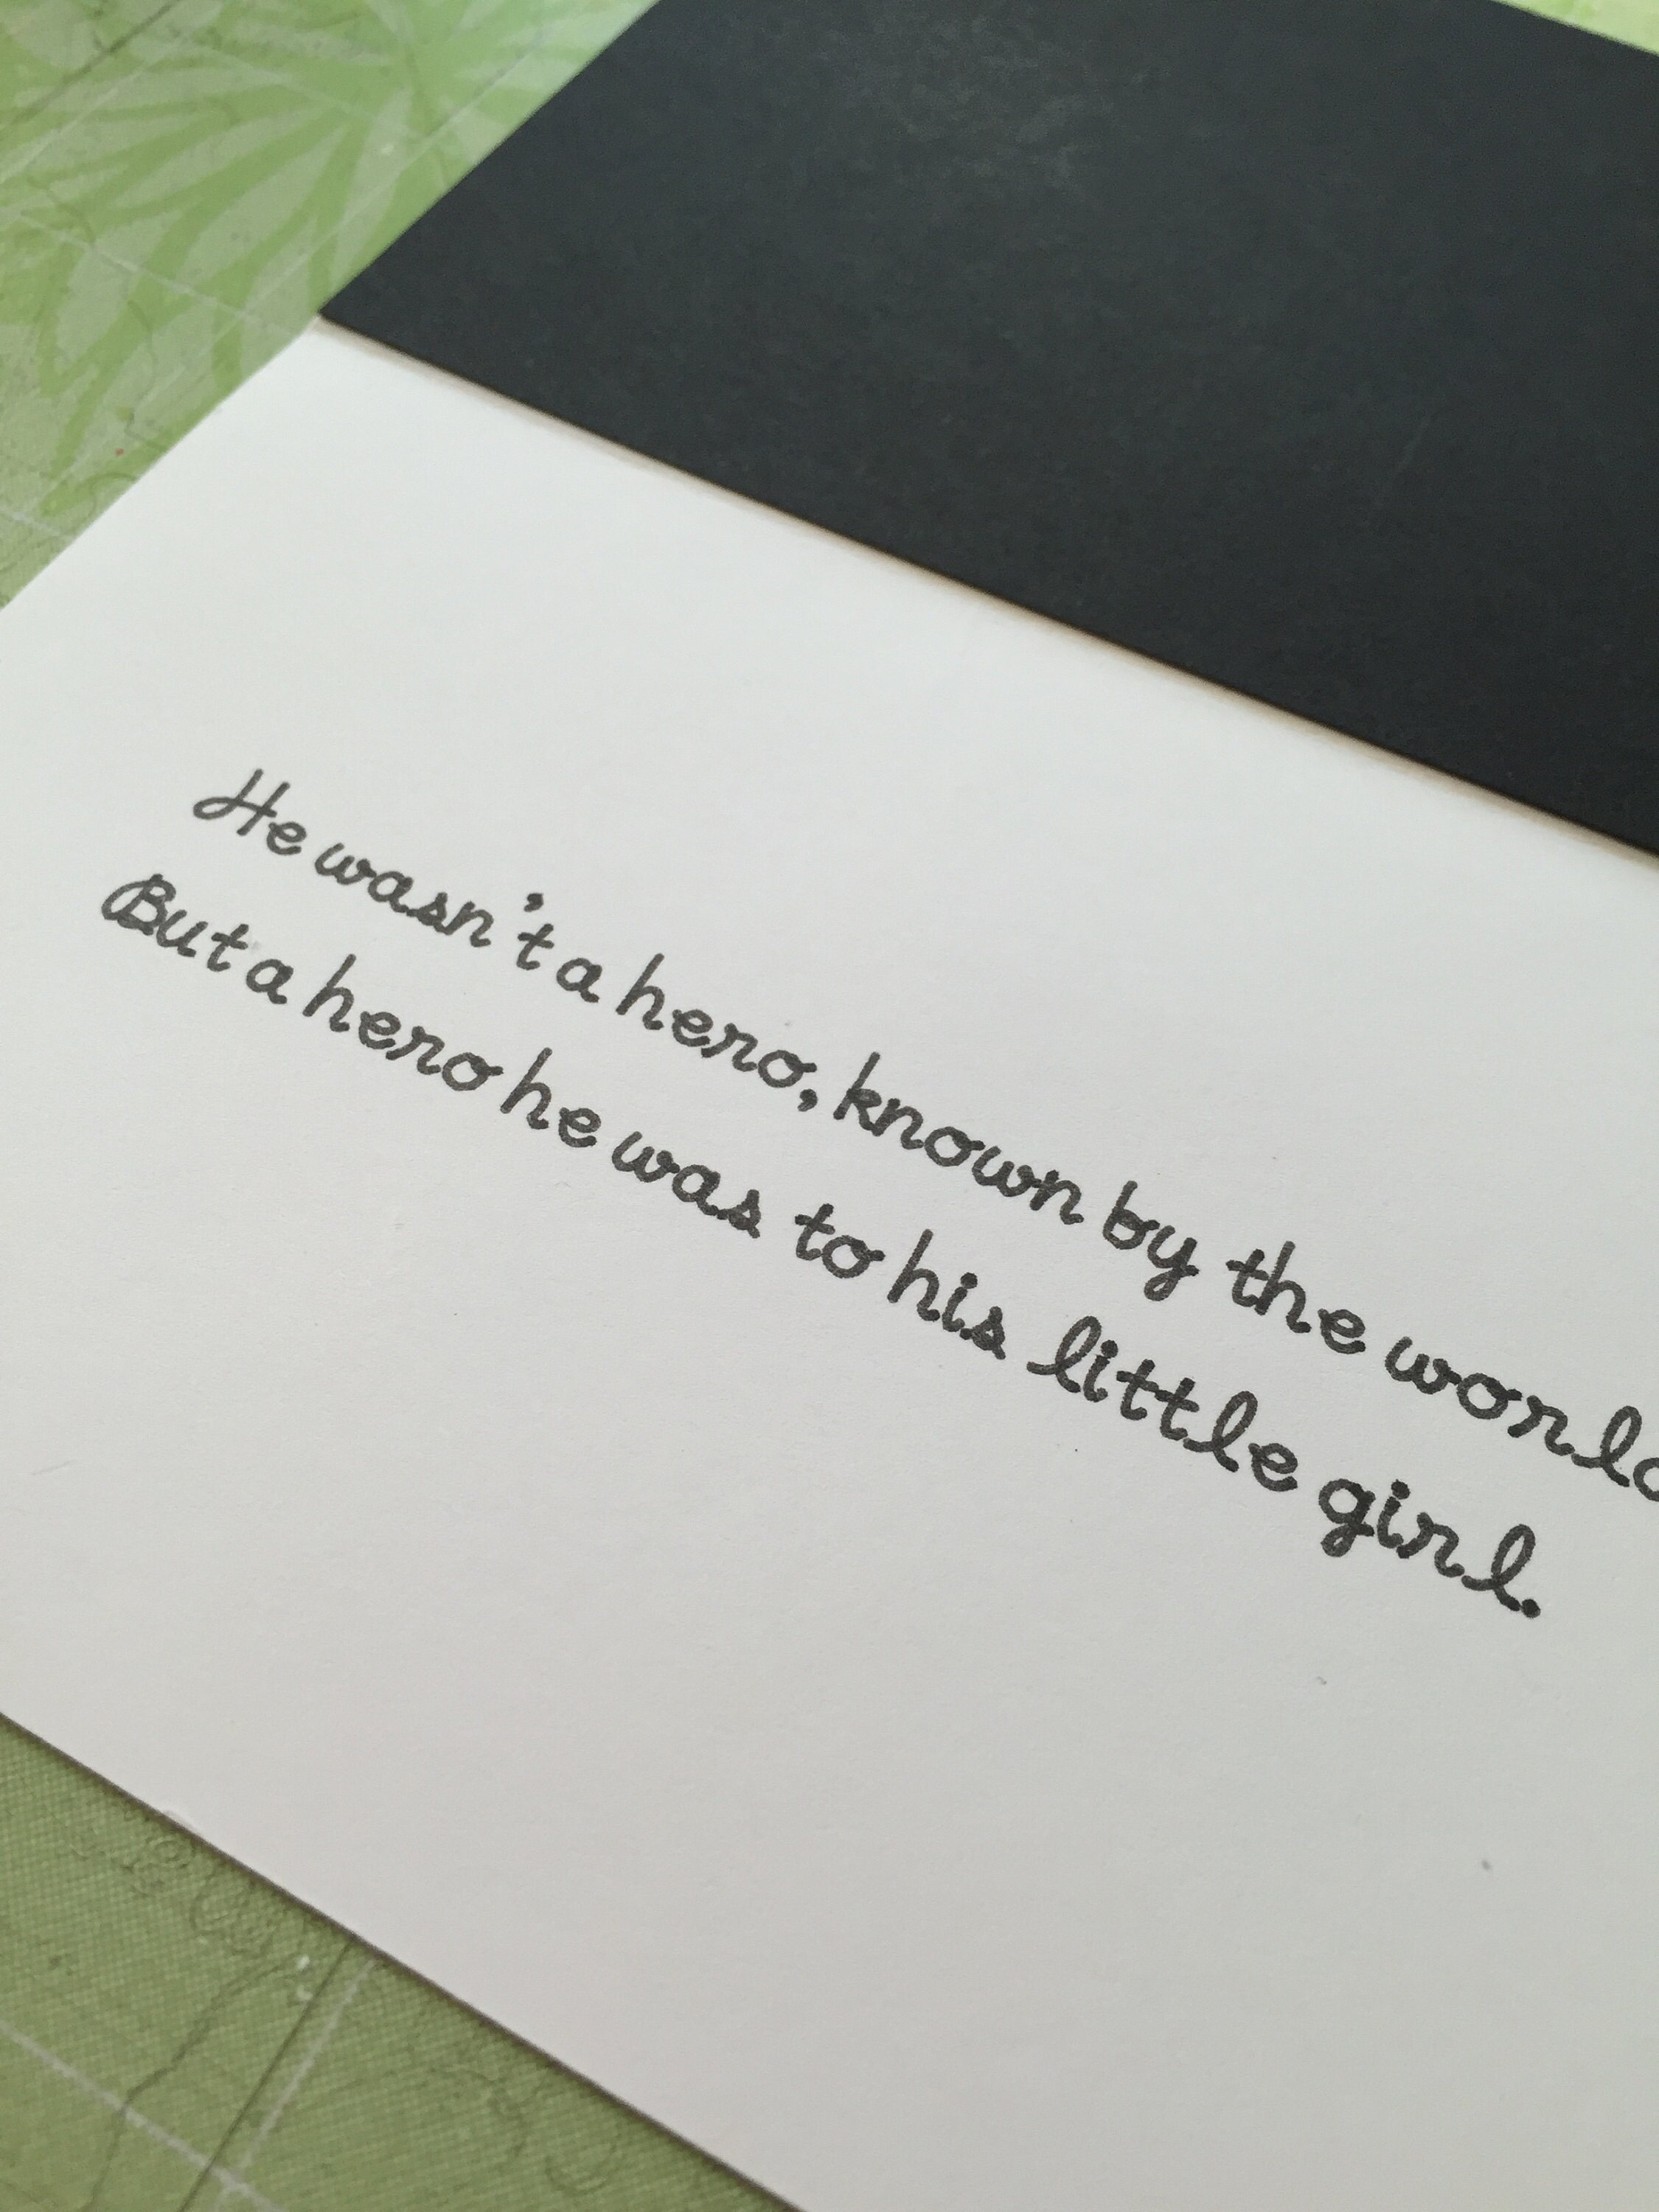 He wasn't a hero, known by the world
But a hero he was to his little girl.